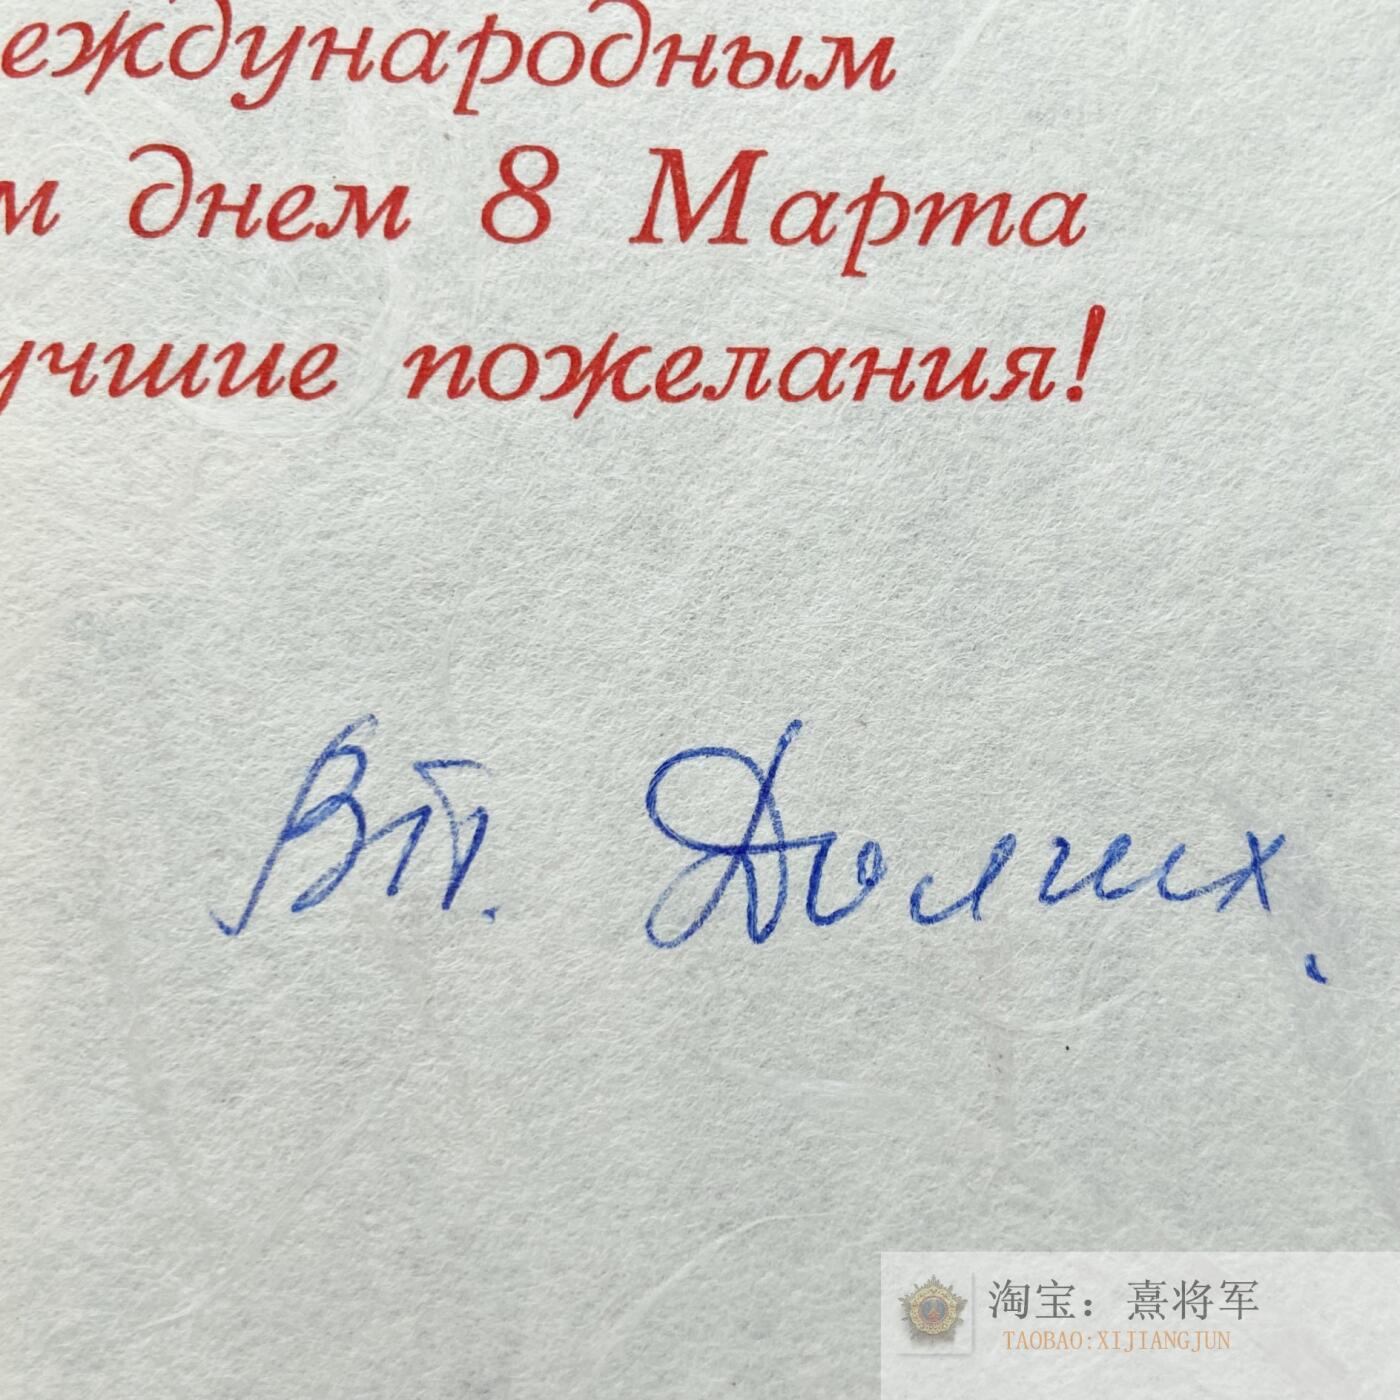 еждународным
м днем 8 Марта
учшие пожелания!
Вл. Долгих.
淘宝：熹将军
TAOBAO:XIJIANGJUN